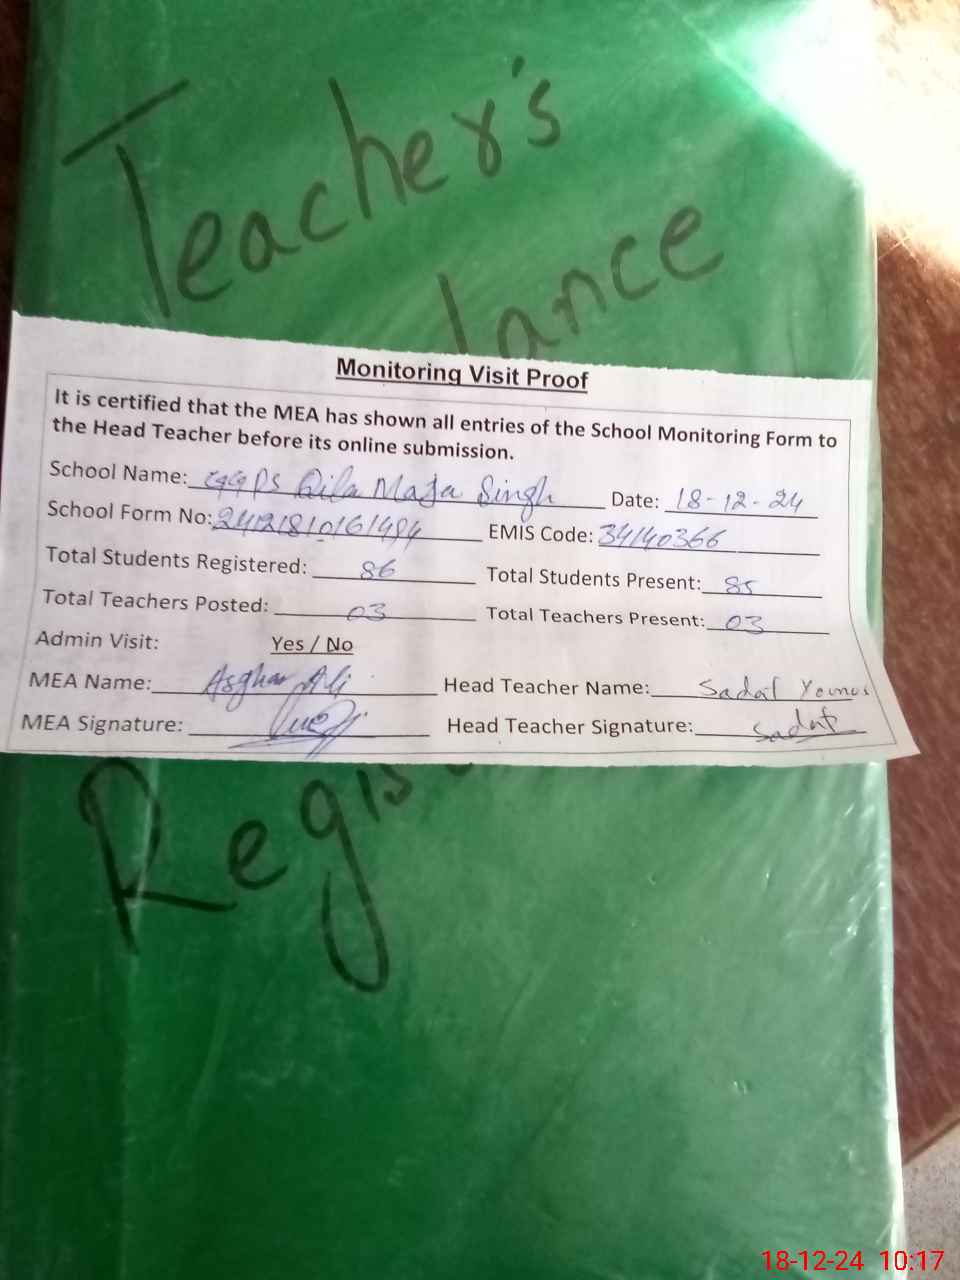 Teacher's
dance
Monitoring Visit Proof
It is certified that the MEA has shown all entries of the School Monitoring Form to
the Head Teacher before its online submission.
School Name: GGPS Qila Maja Singh Date: 18-12-24
School Form No: 2412181016 EMIS Code: 34140366
Total Students Registered: 86 Total Students Present: 85
Total Teachers Posted: 03 Total Teachers Present: 03
Admin Visit: Yes / No
MEA Name: Asghar Ali Head Teacher Name: Sadaf Younus
MEA Signature: Head Teacher Signature: Sadaf
Regis
18-12-24 10:17